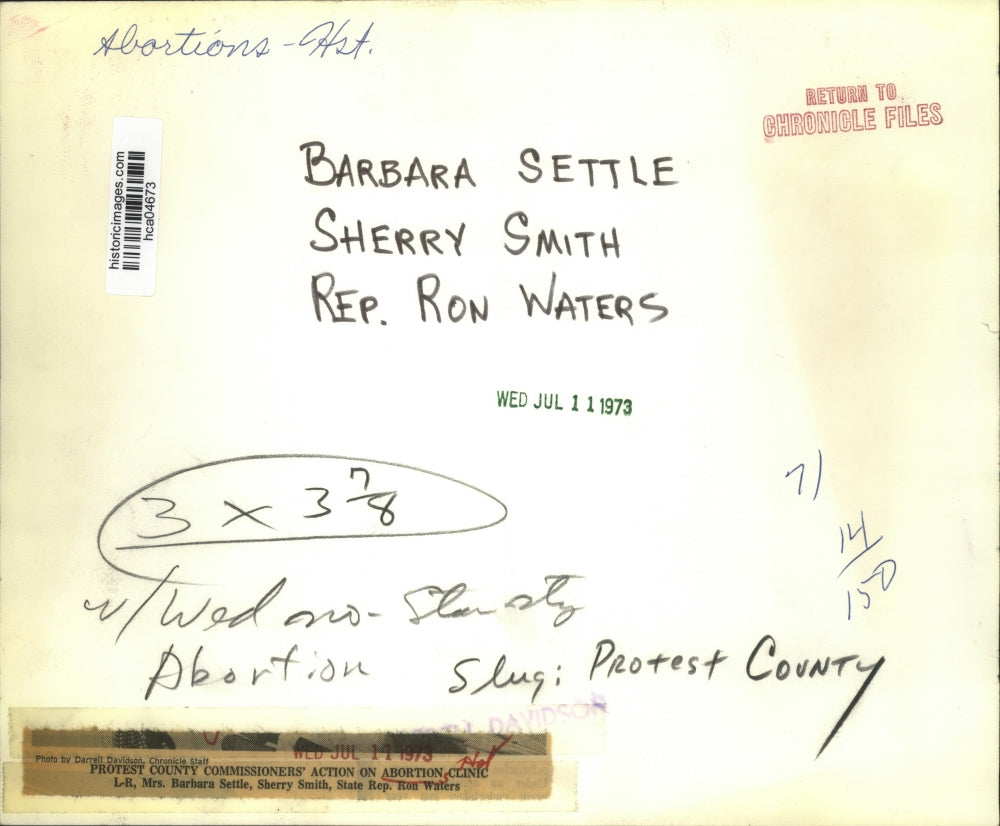 Abortions - Hst.
RETURN TO
CHRONICLE FILES
historicimages.com
hca04673
BARBARA SETTLE
SHERRY SMITH
REP. RON WATERS
WED JUL 1 1 1973
3 x 3 7/8
7/
14/150
w/Wed no-Star
Abortion Slug: PROTEST COUNTY
DAVIDSON
WED JUL 11 1973
Photo by Darrell Davidson, Chronicle Staff
PROTEST COUNTY COMMISSIONERS' ACTION ON ABORTION CLINIC
L-R, Mrs. Barbara Settle, Sherry Smith, State Rep. Ron Waters